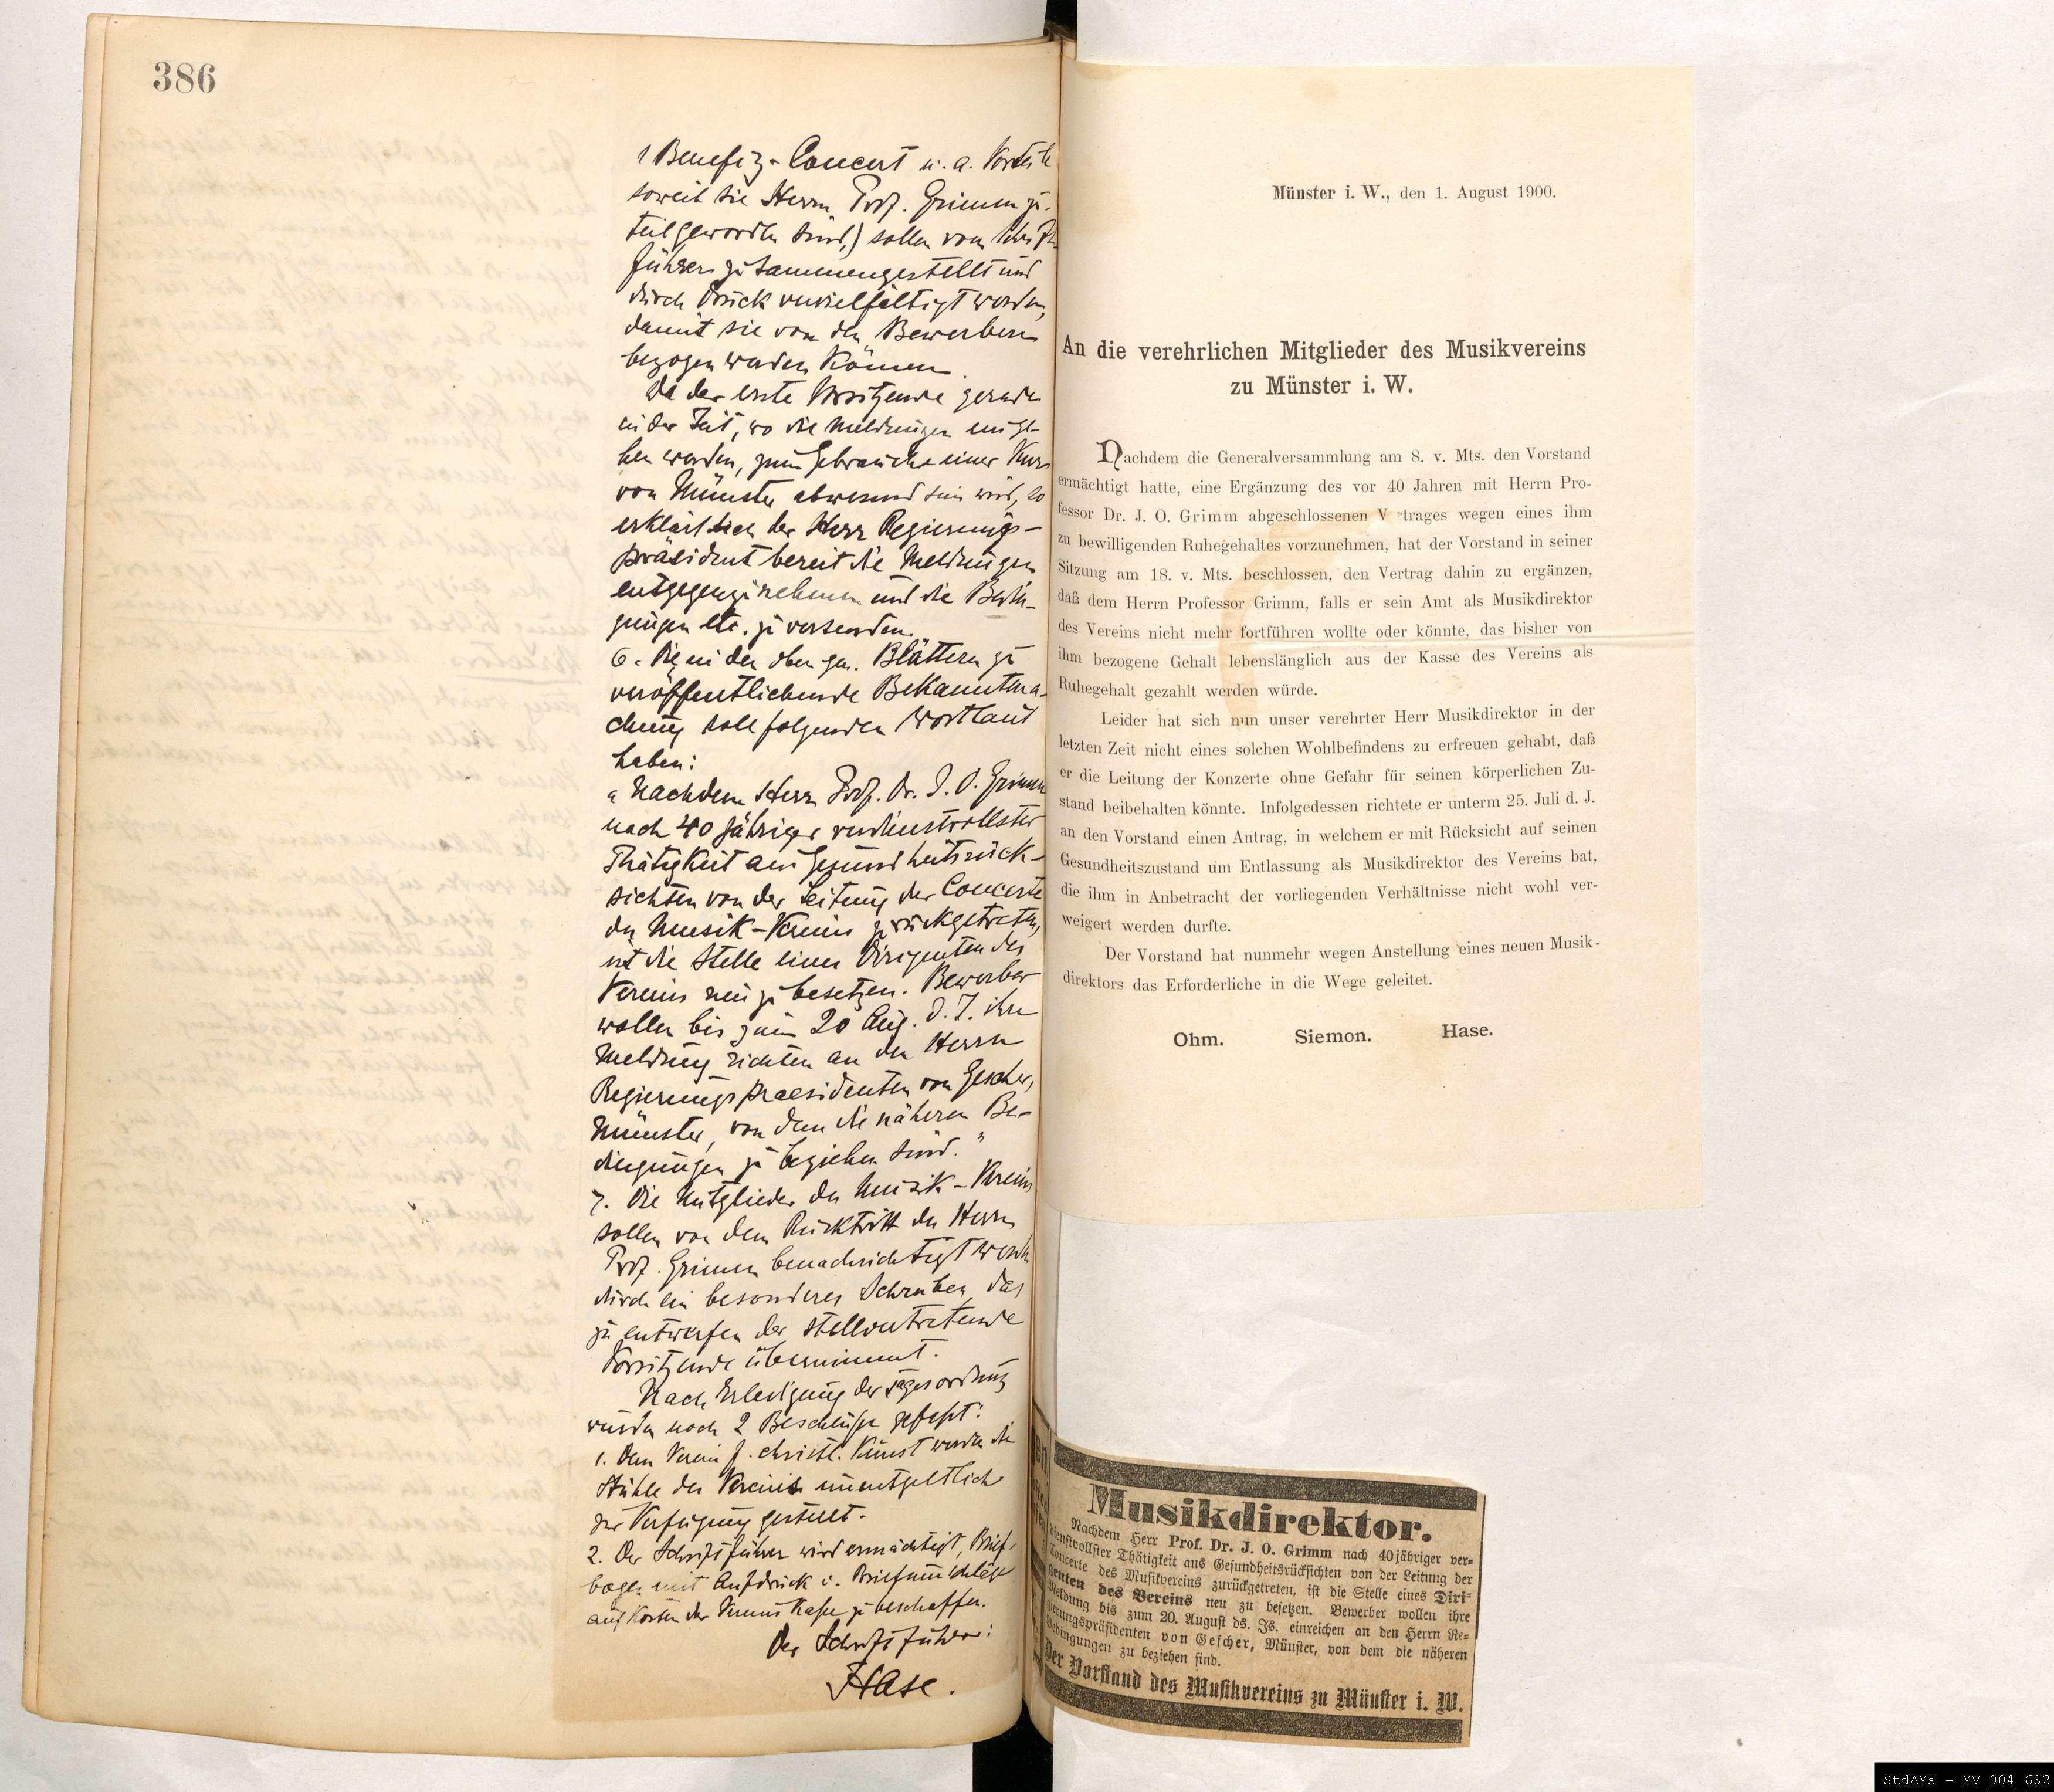 386
1 Benefiz-Concert u. a. Vorteile
soweit sie Herrn Prof. Grimm zu-
teil geworden sind,) sollen vom Schrift-
führer zusammengestellt und
durch Druck vervielfältigt werden,
damit sie von den Bewerbern
bezogen werden können.
Da der erste Vorsitzende gerade
in der Zeit, wo die Meldungen einge-
hen werden, zum Gebrauche einer Kur
von Münster abwesend sein wird, so
erklärt sich der Herr Regierungs-
präsident bereit die Meldungen
entgegenzunehmen und die Bedin-
gungen etc. zu versenden.
6. Die in den oben gen. Blättern zu
veröffentlichende Bekanntma-
chung soll folgenden Wortlaut
haben:
„Nachdem Herr Prof. Dr. J. O. Grimm
nach 40 jähriger verdienstvollster
Thätigkeit aus Gesundheitsrück-
sichten von der Leitung der Concerte
des Musik-Vereins zurückgetreten,
ist die Stelle eines Dirigenten des
Vereins neu zu besetzen. Bewerber
wollen bis zum 20 Aug. d. J. ihre
Meldung richten an den Herrn
Regierungspraesidenten von Gescher,
Münster, von dem die näheren Be-
dingungen zu beziehen sind."
7. Die Mitglieder des Musik-Vereins
sollen von dem Rücktritt des Herrn
Prof. Grimm benachrichtigt werden
durch ein besonderes Schreiben, das
zu entwerfen der stellvertretende
Vorsitzende übernimmt.
Nach Erledigung der Tagesordnung
wurden noch 2 Beschlüsse gefaßt:
1. Dem Verein f. christl. Kunst werden die
Stühle des Vereins unentgeltlich
zur Verfügung gestellt.
2. Der Schriftführer wird ermächtigt, Brief-
bogen mit Aufdruck u. Briefumschläge
auf Kosten der Vereinskasse zu beschaffen.
Der Schriftführer:
Hase.
Münster i. W., den 1. August 1900.
An die verehrlichen Mitglieder des Musikvereins
zu Münster i. W.
Nachdem die Generalversammlung am 8. v. Mts. den Vorstand
ermächtigt hatte, eine Ergänzung des vor 40 Jahren mit Herrn Pro-
fessor Dr. J. O. Grimm abgeschlossenen Vertrages wegen eines ihm
zu bewilligenden Ruhegehaltes vorzunehmen, hat der Vorstand in seiner
Sitzung am 18. v. Mts. beschlossen, den Vertrag dahin zu ergänzen,
daß dem Herrn Professor Grimm, falls er sein Amt als Musikdirektor
des Vereins nicht mehr fortführen wollte oder könnte, das bisher von
ihm bezogene Gehalt lebenslänglich aus der Kasse des Vereins als
Ruhegehalt gezahlt werden würde.
Leider hat sich nun unser verehrter Herr Musikdirektor in der
letzten Zeit nicht eines solchen Wohlbefindens zu erfreuen gehabt, daß
er die Leitung der Konzerte ohne Gefahr für seinen körperlichen Zu-
stand beibehalten könnte. Infolgedessen richtete er unterm 25. Juli d. J.
an den Vorstand einen Antrag, in welchem er mit Rücksicht auf seinen
Gesundheitszustand um Entlassung als Musikdirektor des Vereins bat,
die ihm in Anbetracht der vorliegenden Verhältnisse nicht wohl ver-
weigert werden durfte.
Der Vorstand hat nunmehr wegen Anstellung eines neuen Musik-
direktors das Erforderliche in die Wege geleitet.
Ohm. Siemon. Hase.
Musikdirektor.
Nachdem Herr Prof. Dr. J. O. Grimm nach 40jähriger ver-
dienstvollster Thätigkeit aus Gesundheitsrücksichten von der Leitung der
Concerte des Musikvereins zurückgetreten, ist die Stelle eines Diri-
genten des Vereins neu zu besetzen. Bewerber wollen ihre
Meldung bis zum 20. August ds. Js. einreichen an den Herrn Re-
gierungspräsidenten von Gescher, Münster, von dem die näheren
Bedingungen zu beziehen sind.
Der Vorstand des Musikvereins zu Münster i. W.
StdAMs - MV_004_632